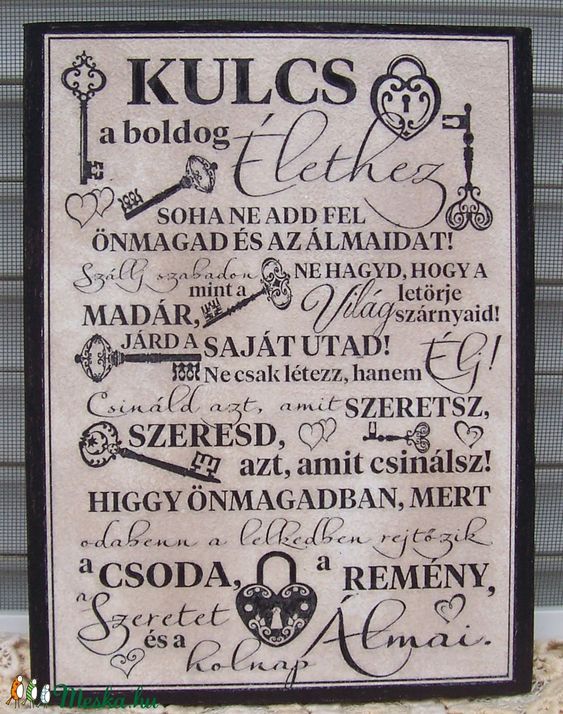 KULCS
a boldog Élethez
SOHA NE ADD FEL
ÖNMAGAD ÉS AZ ÁLMAIDAT!
Szállj szabadon
mint a
MADÁR,
NE HAGYD, HOGY A
Világ letörje
szárnyaid!
JÁRD A SAJÁT UTAD!
Ne csak létezz, hanem Élj!
Csináld azt, amit SZERETSZ,
SZERESD,
azt, amit csinálsz!
HIGGY ÖNMAGADBAN, MERT
odabenn a lelkedben rejtőzik
a CSODA, a REMÉNY,
a Szeretet
és a
holnap Álmai.
Meska.hu